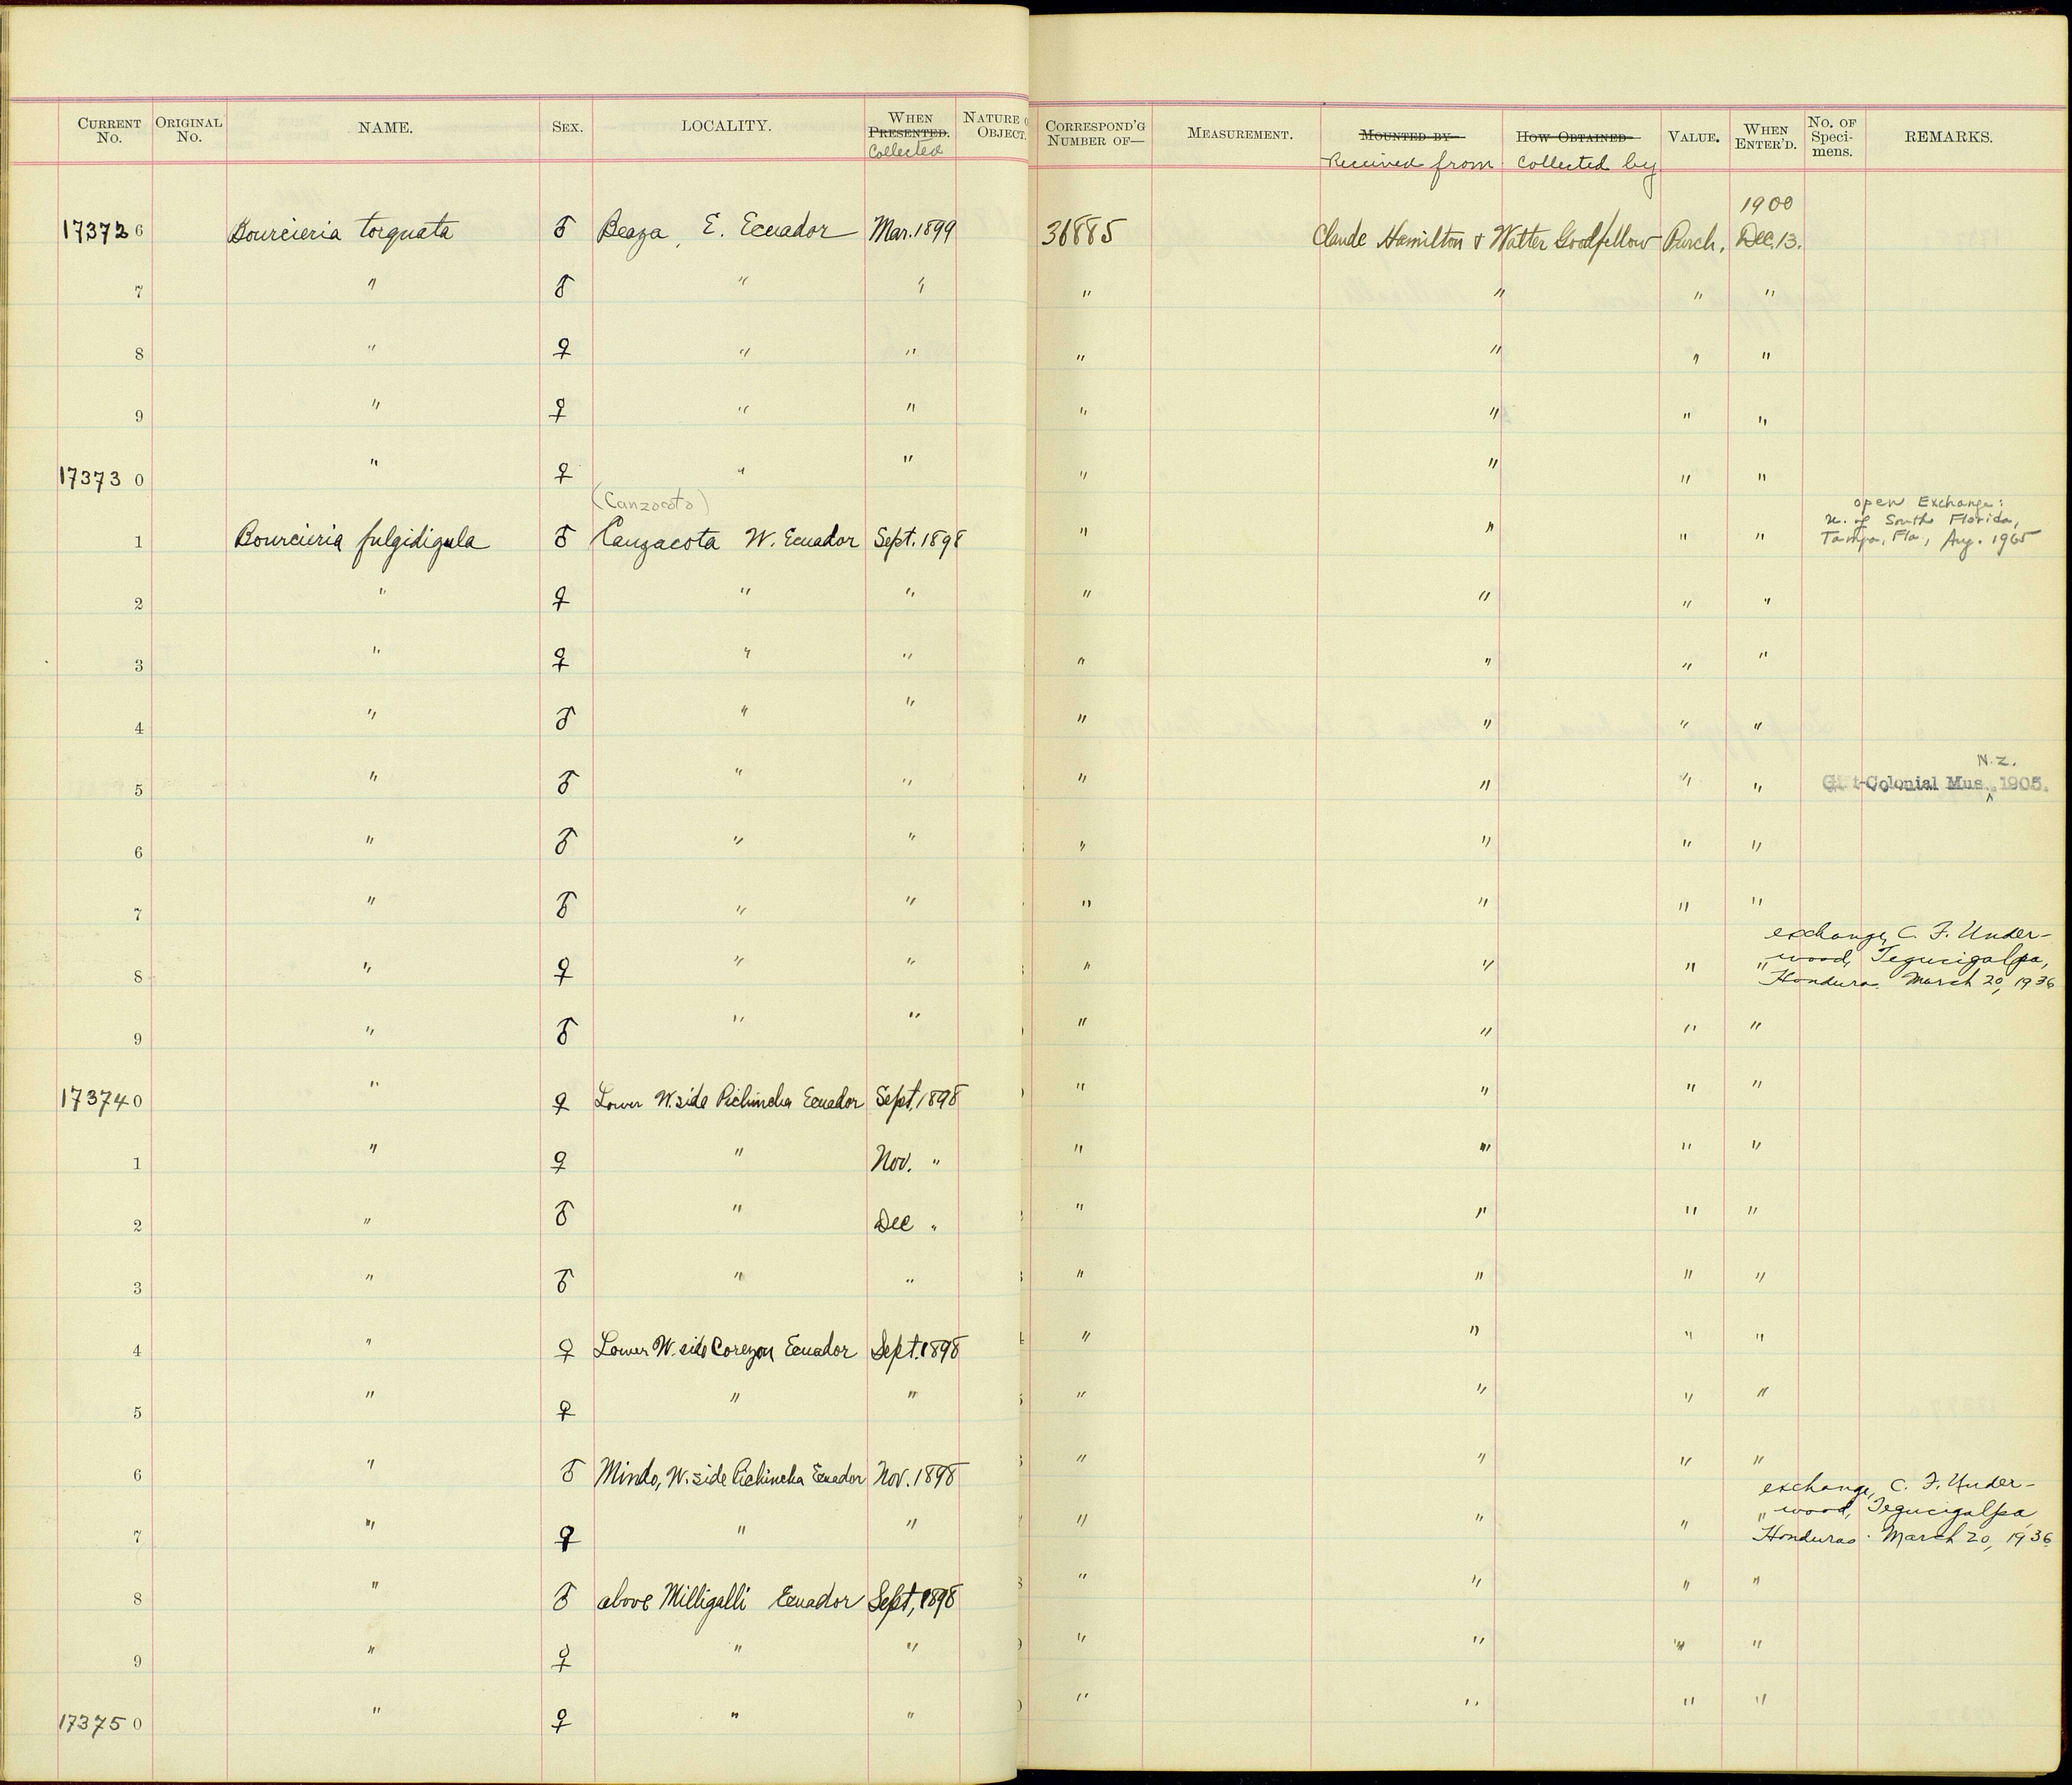 CURRENT No. ORIGINAL No. NAME. SEX. LOCALITY. WHEN PRESENTED. Collected NATURE OBJECT. CORRESPOND'G NUMBER OF— MEASUREMENT. MOUNTED BY Received from HOW OBTAINED collected by VALUE. WHEN ENTER'D. No. OF Speci-mens. REMARKS.
1900
173726 Bourcieria torquata ♂ Beaza, E. Ecuador Mar. 1899 36885 Claude Hamilton & Walter Goodfellow Purch. Dec. 13.
7 " ♂ " " " " " "
8 " ♀ " " " " " "
9 " ♀ " " " " " "
173730 " ♀ " " " " " "
(Canzocoto)
open Exchange:
1 Bourcieria fulgidigula ♂ Canzacota W. Ecuador Sept. 1898 " " " " U. of South Florida,
Tampa, Fla., Aug. 1965
2 " ♀ " " " " " "
3 " ♀ " " " " " "
4 " ♂ " " " " " "
N.Z.
5 " ♂ " " " " " " Gift-Colonial Mus. 1905.
6 " ♂ " " " " " "
7 " ♂ " " " " " "
exchange, C. F. Under-
8 " ♀ " " " " " " wood, Tegucigalpa,
Honduras. March 20, 1936
9 " ♂ " " " " " "
173740 " ♀ Lower W. side Pichincha Ecuador Sept. 1898 " " " "
1 " ♀ " Nov. " " " " "
2 " ♂ " Dec " " " " "
3 " ♂ " " " " " "
4 " ♀ Lower W. side Corezon Ecuador Sept. 1898 " " " "
5 " ♀ " " " " " "
6 " ♂ Mindo, W. side Pichincha Ecuador Nov. 1898 " " " "
exchange, C. F. Under-
7 " ♀ " " " " " " wood, Tegucigalpa
Honduras. March 20, 1936
8 " ♂ above Milligalli Ecuador Sept, 1898 " " " "
9 " ♀ " " " " " "
173750 " ♀ " " " " " "